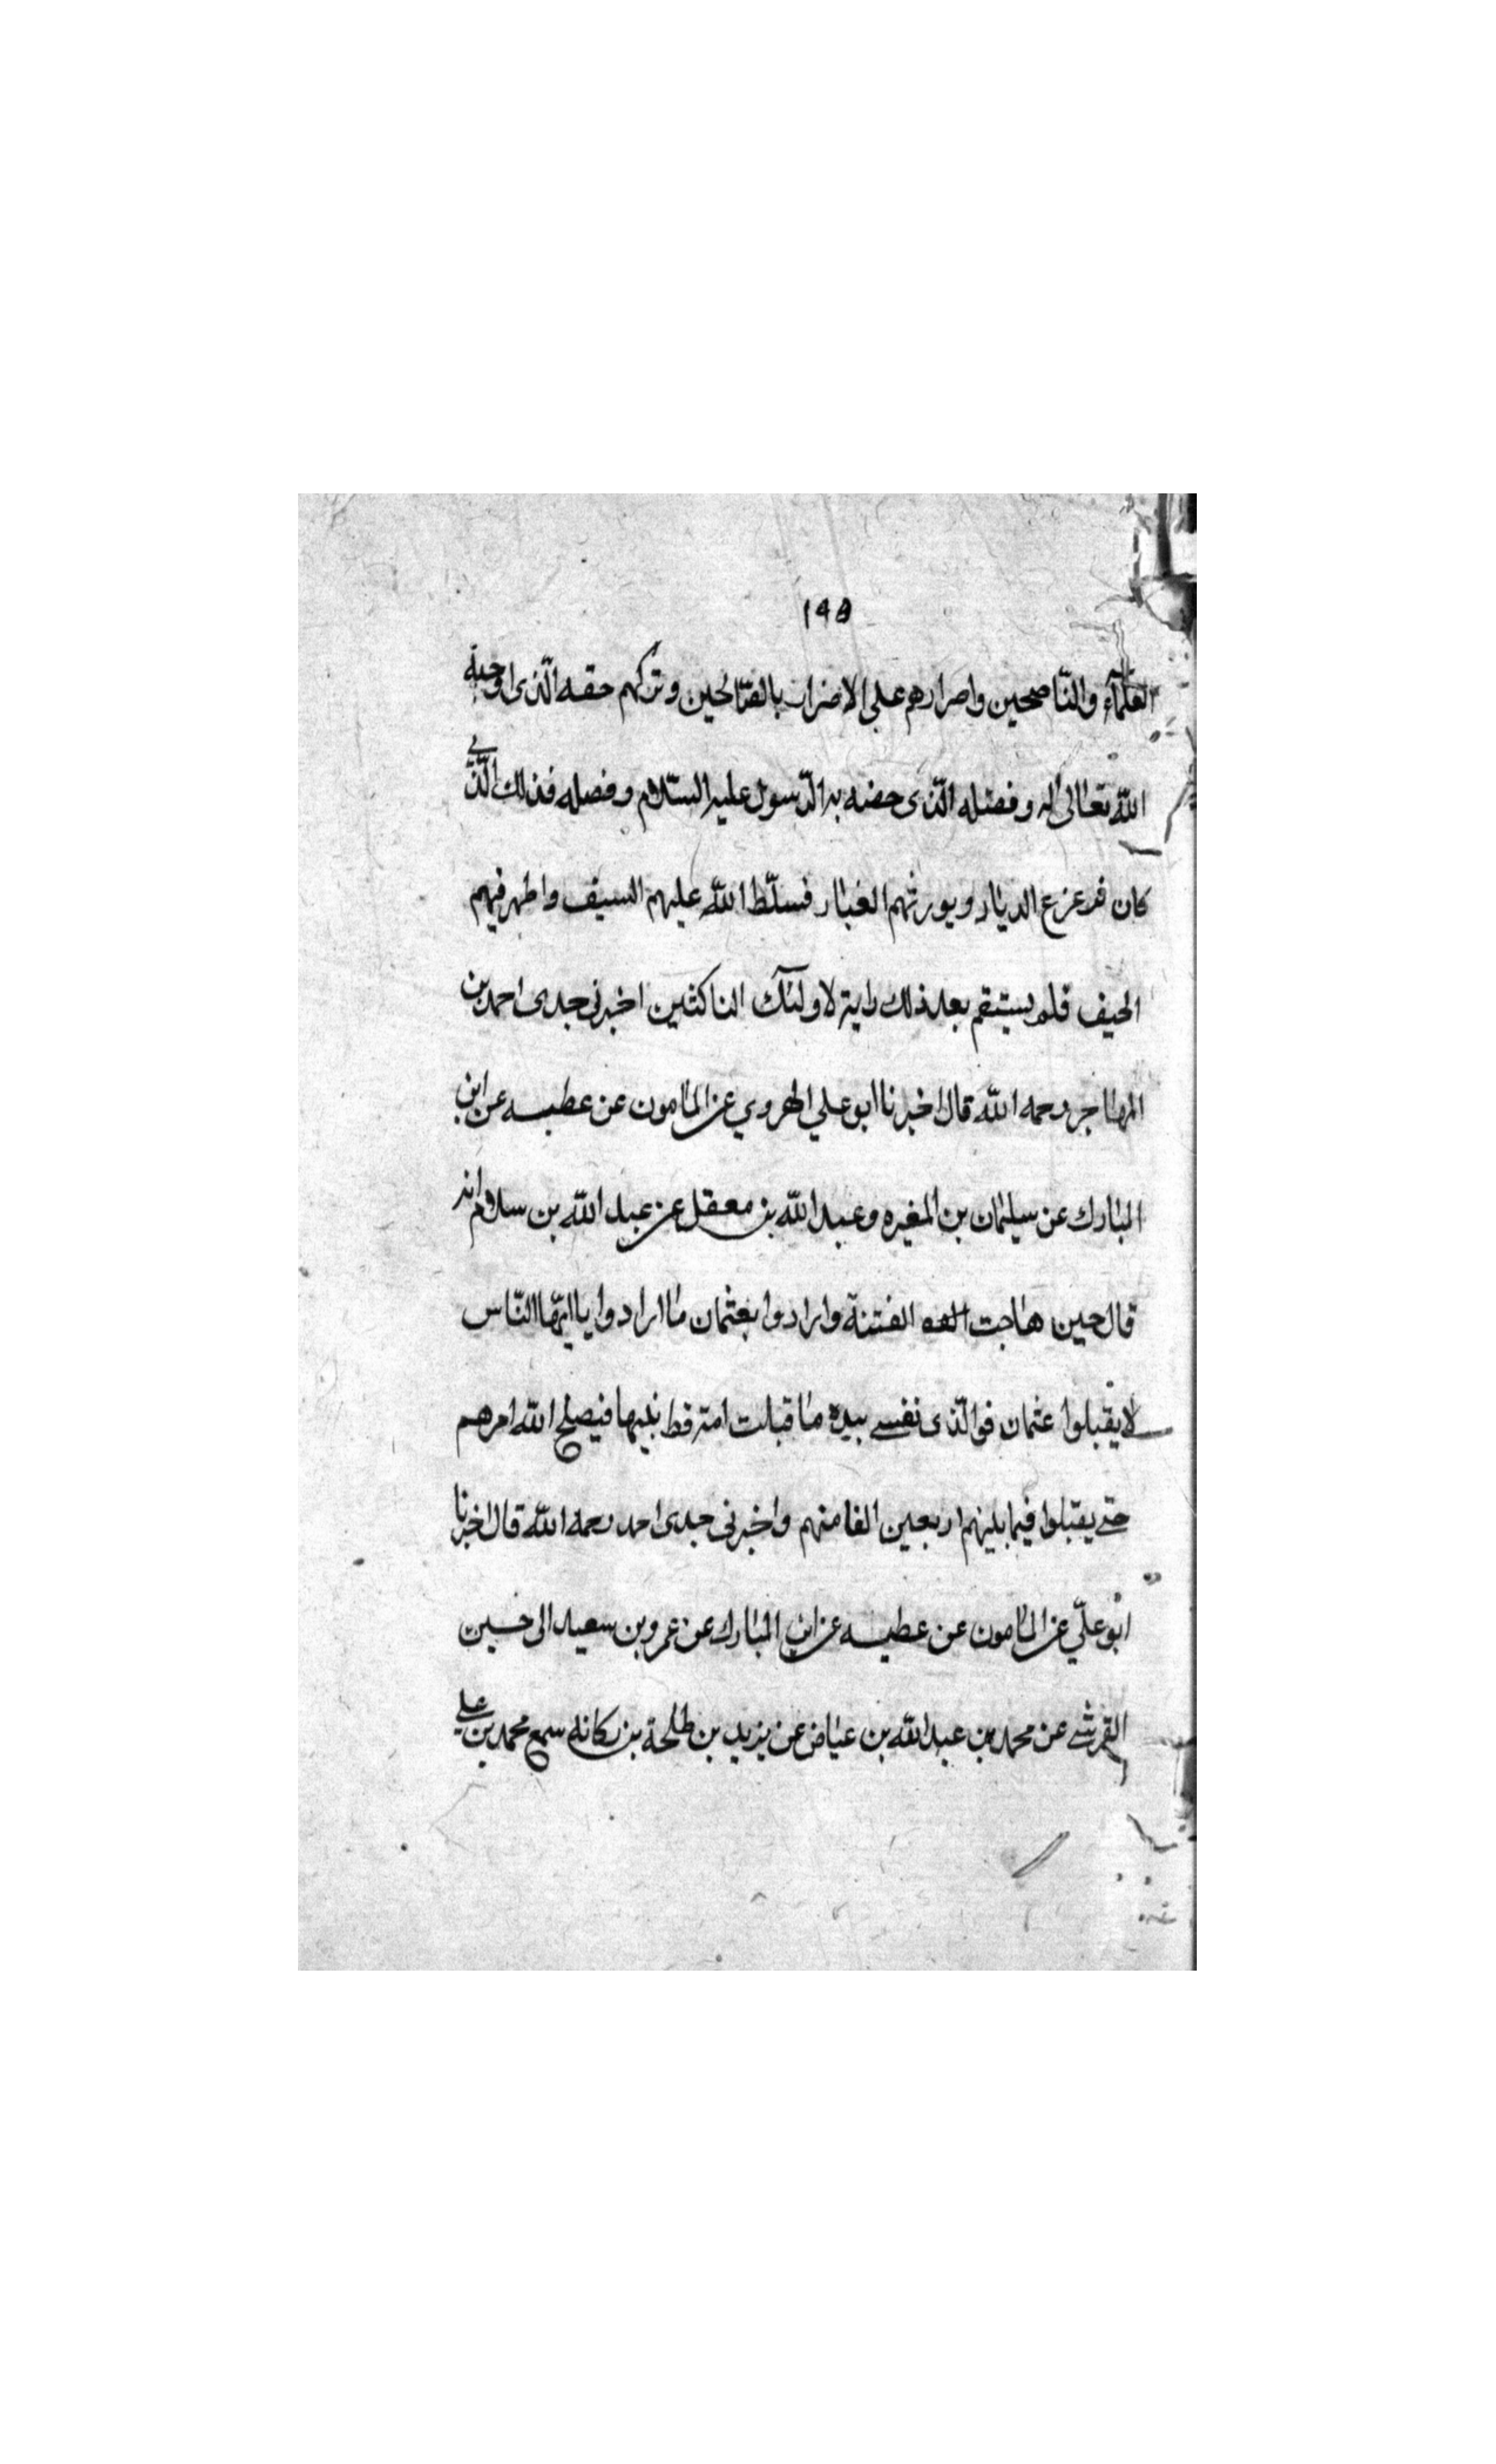 148
العلمآء والنّاصحين واصرارهم على الاضراب بالصّالحين وتركهم حقه الّذى اوجبه
اللّه تعالى له وفضله الّذى خصّه به الرّسول عليه السّلام وفضله فذلك الّذي
كان الديار ويورثهم الغبار فسلّط اللّه عليهم السيف واظهر فيهم
الحيف فلم يستقم بعد ذلك راية لاولئك الناكثين اخبرنى جدى احمد بن
المهاجر رحمه اللّه قال اخبرنا ابو علي الهروي عن المامون عن عطيه عن ابن
المبارك عن سليمان بن المغيره وعبد اللّه بن معقل عن عبد اللّه بن سلام انه
قال حين هاجت الفتنة وارادوا بعثمان ما ارادوا يا ايّها النّاس
لا يقتلوا عثمان فوالّذى نفسي بيده ما قتلت امة قط نبيها فيصلح اللّه امرهم
حتے يقتلوا فيما بينهم اربعين الفا منهم واخبرنى جدى احمد رحمه اللّه قال اخبرنا
ابو علّي عن المامون عن عطيه عن ابن المبارك عن عمرو بن سعيد الى حسين
القرشے عن محمد بن عبد اللّه بن عياض عن يزيد بن طلحة بن ركانه سمع محمد بن علي